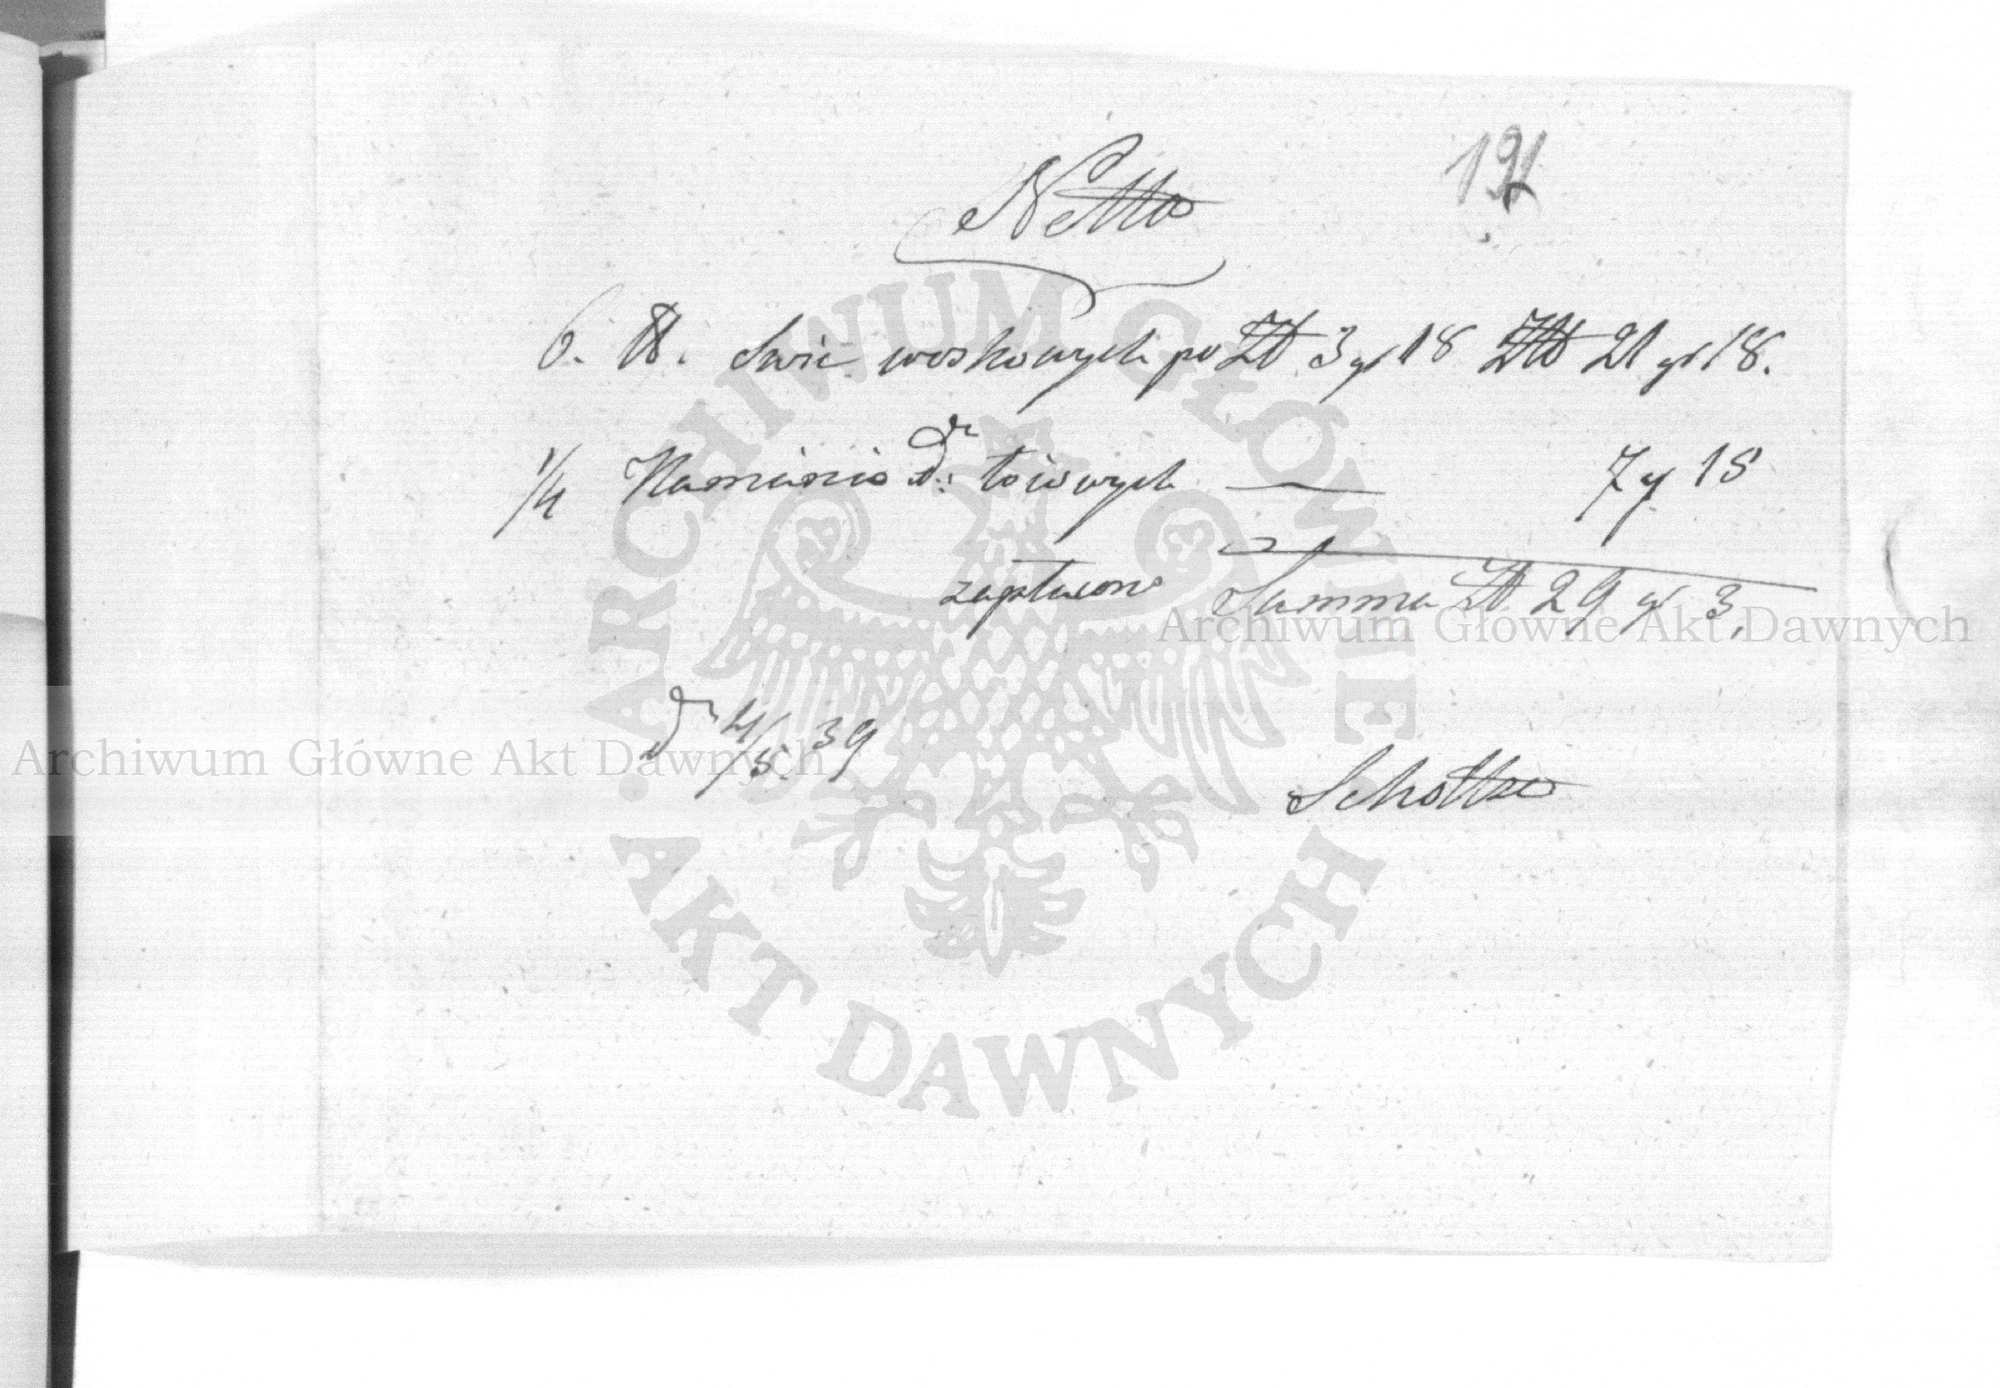 191
Netto
6. ℔. Swic woskowych po Zł 3 gr 18 Złł 21 gr 18.
1/4 Kamienia dr łoiowych — 7 gr 15
zapłacono Summa Zł 29 gr 3.
d 4/5. 39
ARCHIWUM GŁÓWNE AKT DAWNYCH
Archiwum Główne Akt Dawnych
Archiwum Główne Akt Dawnych